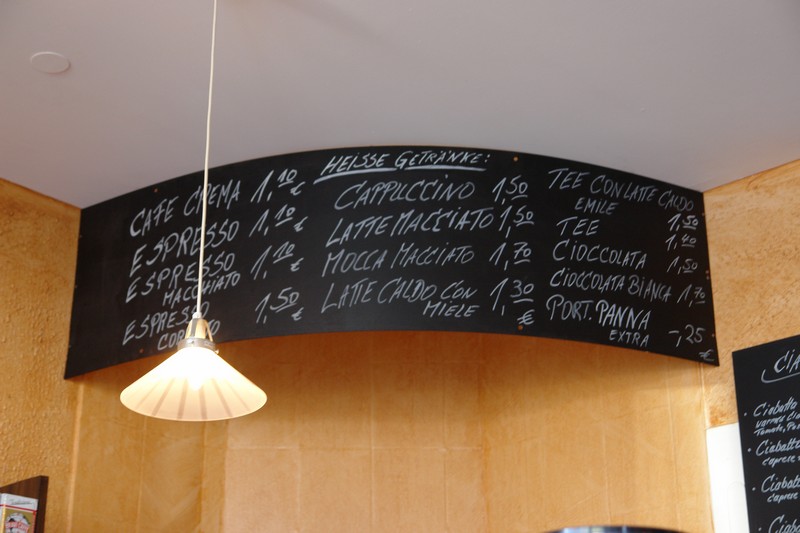 HEISSE GETRÄNKE:
CAFE CREMA 1,10 €
ESPRESSO 1,10 €
ESPRESSO 1,10 €
MACCHIATO
ESPRESSO 1,50 €
CAPPUCCINO 1,50
LATTE MACCIATO 1,50
MOCCA MACCIATO 1,70
LATTE CALDO CON 1,30
MIELE €
TEE CON LATTE CALDO
EMILE 1,50
TEE 1,40
CIOCCOLATA 1,50
CIOCCOLATA BIANCA 1,70
PORT. PANNA
EXTRA -,25
€
• Ciabatta
Tomate,
• Ciabatta
caprese
• Ciabatt
caprese
• Ciabatt